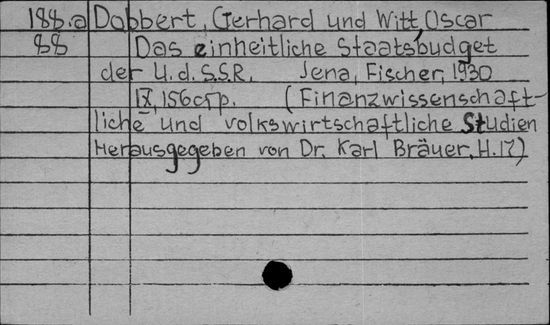 188.a Dobbert, Gerhard und Witt, Oscar
88 Das einheitliche Staatsbudget
der U.d.S.S.R. Jena, Fischer, 1930
IX, 156 p. (Finanzwissenschaft-
liche und volkswirtschaftliche Studien
Herausgegeben von Dr. Karl Bräuer, H.17)